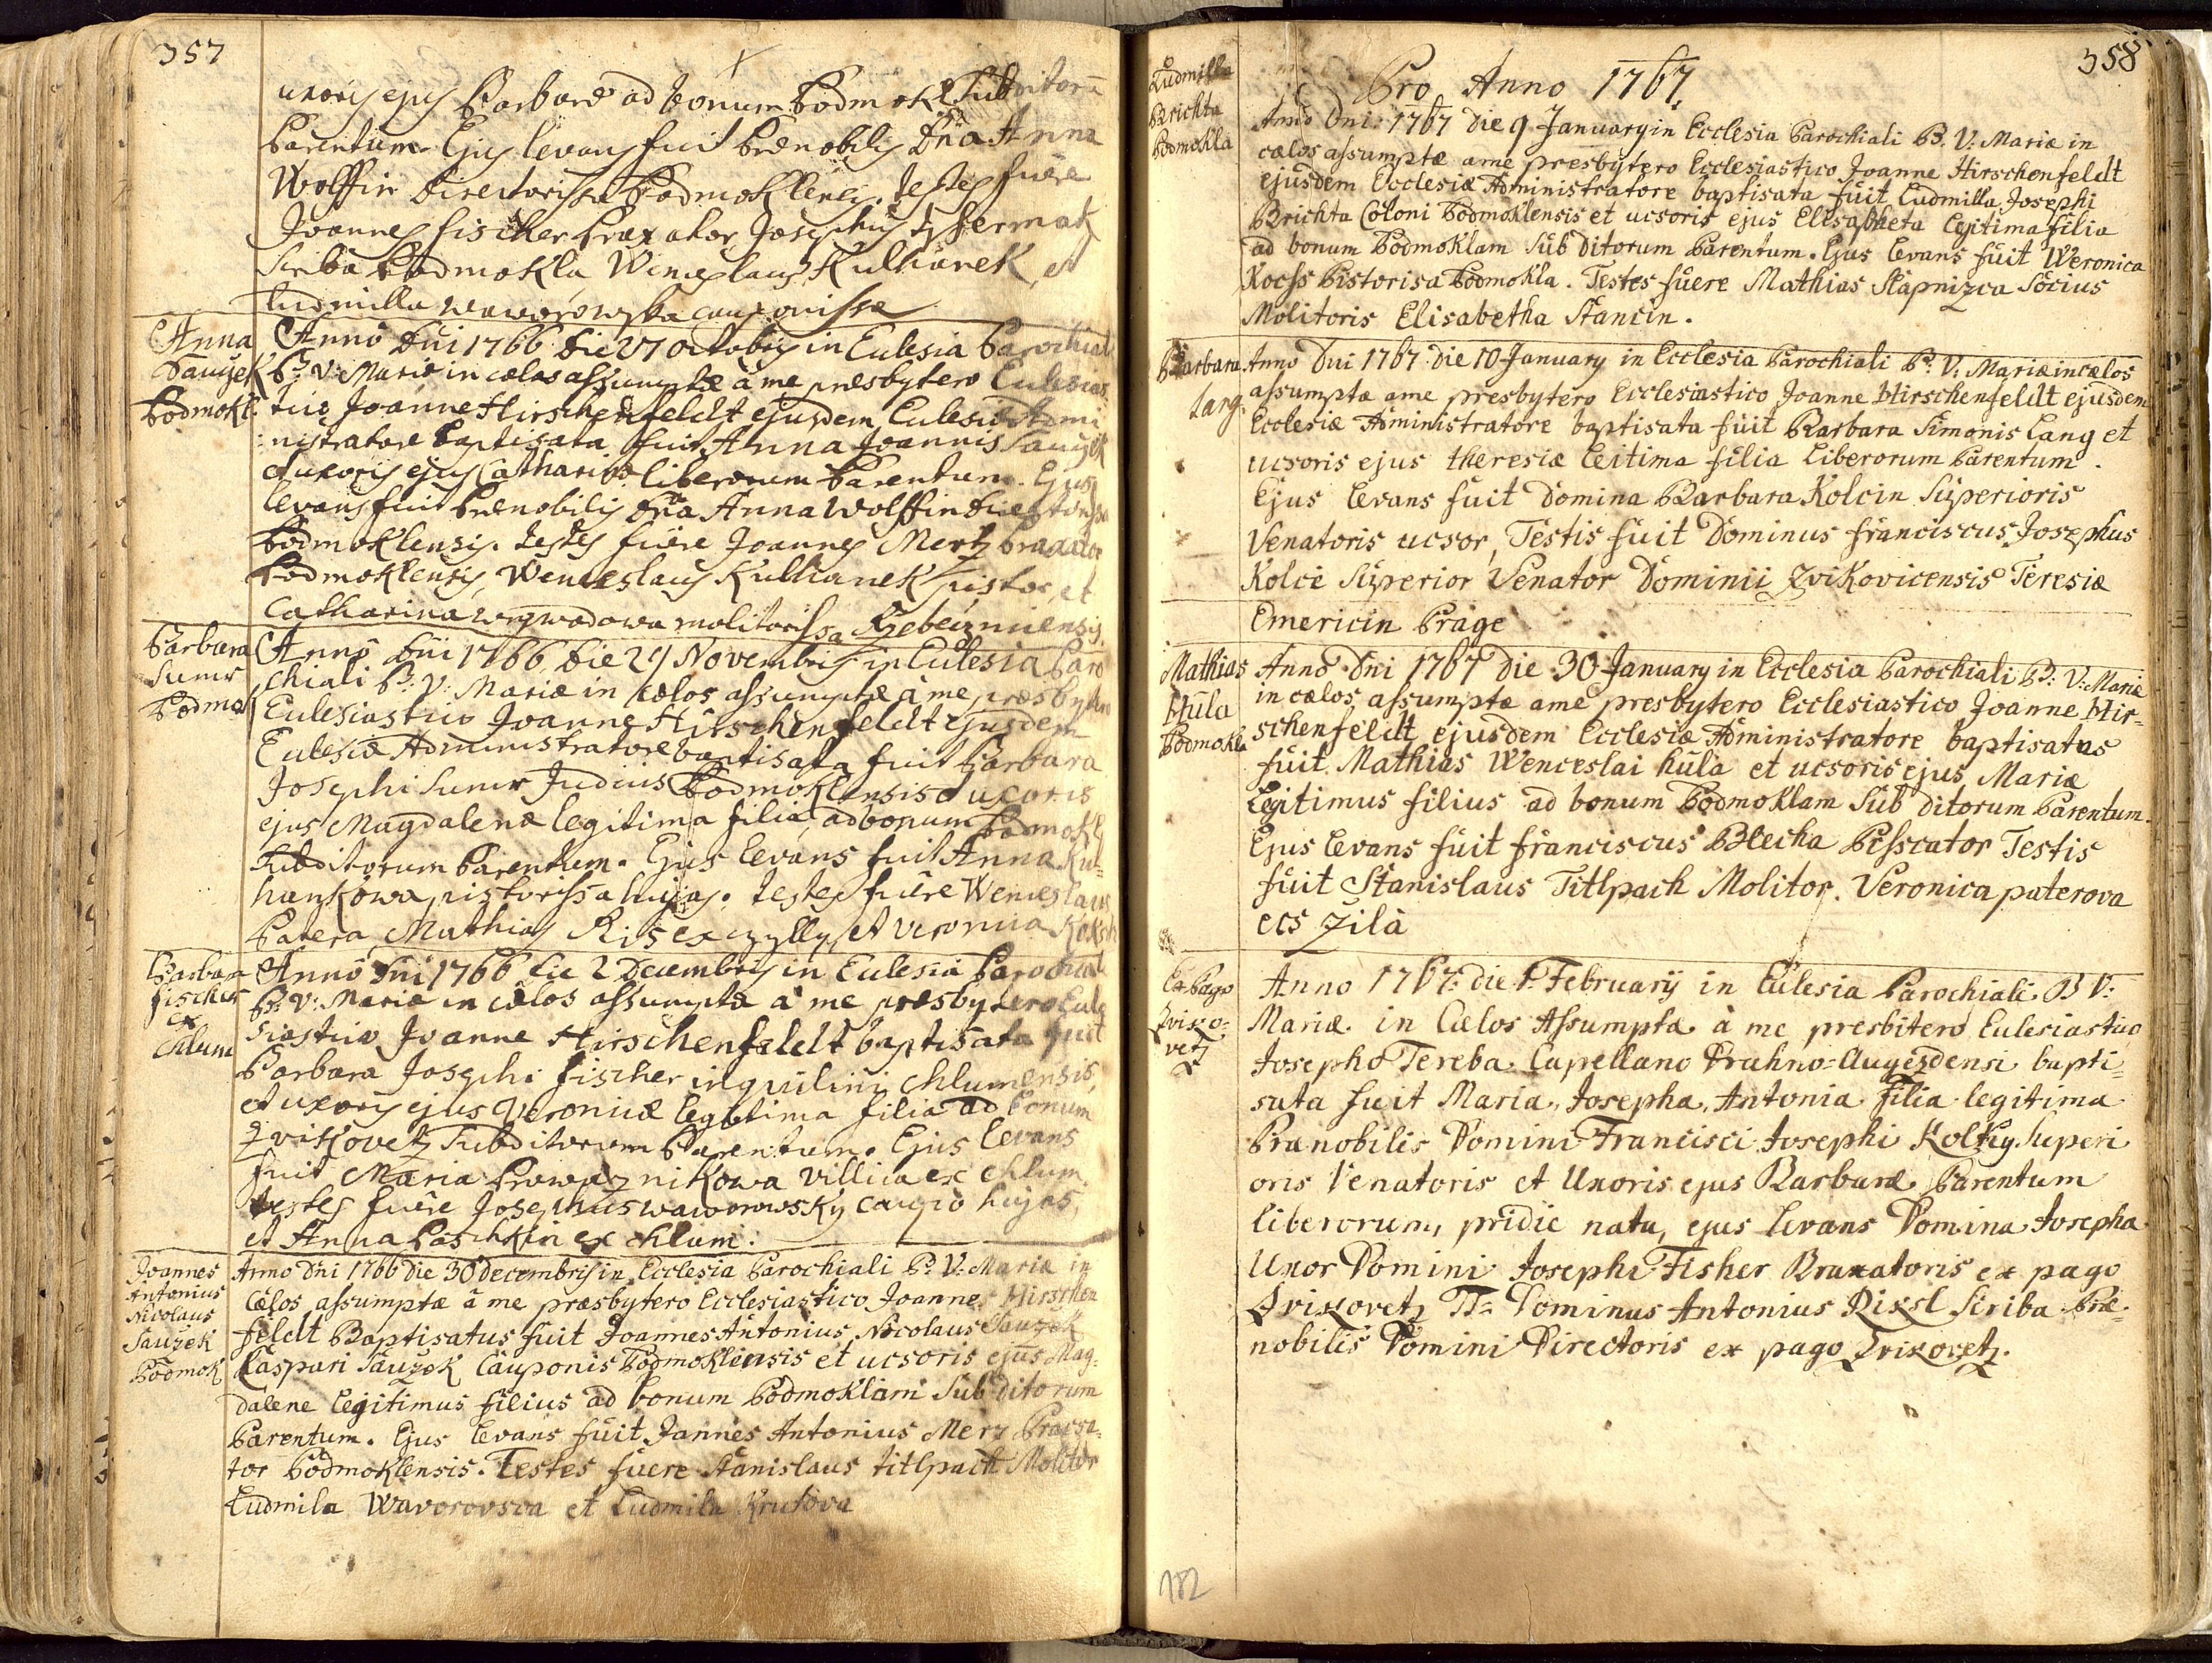 357
uxoris ejus Barbarae ad bonum Podmokl Subditorū
Parentum. Ejus levans fuit Praenobilis Dña Anna
Wolffin Directorissa Podmoklensis. Testes fuêre
Joannes fischer Braxator, Josephus
Scriba Podmokla, Wenceslaus Kulhanek, et
Ludmilla Waworowska cauponissa
Anna
Sauzek
Podmokl.
Anno Dni 1766 Die 27 octobris in Eclesia Parochiali
B. V. Mariae in caelos assumptae à me presbytero Eclesias
tico Joanne Hirschenfeldt ejusdem Eclesiae Admi
nistratore baptisata fuit Anna Joannis Sauzek
et uxoris ejus Catharinae liberorum Parentum. Ejus
levans fuit Praenobilis Dña Anna Wolffin Directorissa
Podmoklensis. testes fuêre Joannes Mertz braxator
Podmoklensis, Wenceslaus Kulhanek pistor, et
Catharina molitorissa
Barbara
Sumr
Podmokl
Anno Dni 1766 Die 24 Novembris in Eclesia Paro
chiali B. V. Mariae in caelos assumptae à me presbytero
Eclesiastico Joanne Hirschenfeldt ejusdem
Eclesiae Administratore baptisata fuit Barbara
Josephi Sumr Judicis Podmoklensis et uxoris
ejus Magdalenae legitima filia, ad bonum Podmokl
Subditorum Parentum. Ejus levans fuit Anna Kul=
hankowa pistorissa hujas. testes fuêre Wenceslaus
Patera Mathias Ris ex et Veronia
Barbara
fischer
ex
Chlum
Anno Dni 1766 die 2 Decembris in Eclesia Parochiali
B. V. Mariae in caelos assumptae à me presbytero Ecle
siastico Joanne Hirschenfeldt baptisata fuit
Barbara Josephi fischer inquilini chlumensis,
et uxoris ejus Veronicae legitima filia ad bonum
Zvikovetz Subditorum Parentum. Ejus levans
fuit Maria villica ex chlum.
testes fuêre Josephus waworowsky caupo hujas,
et Anna Paschkin ex chlum.
Joannes
Antonius
Nicolaus
Sauzek
Podmok
Anno Dni 1766 die 30 decembris in Ecclesia Parochiali B. V. Mariae in
Caelos assumptae â me praesbytero Ecclesiastico Joanne Hirschen
feldt Baptisatus fuit Joannes Antonius Nicolaus Sauzek
Caspari Sauzek Cauponis Podmoklensis et ucsoris ejus Mag=
dalene legitimus filius ad bonum Podmoklam Subditorum
Parentum. Ejus levans fuit Jannes Antonius Merz Pracsa=
tor Podmoklensis. Testes fuere Stanislaus titlpach Molitor
Ludmila Wavorovsca et Ludmila Krutova
358
Pro Anno 1767
Ludmilla
Brichta
Podmokla
Anno Dni: 1767 die 9 January in Ecclesia Parochiali B. V. Mariae in
caelos assumptae ame presbytero Ecclesiastico Joanne Hirschenfeldt
ejusdem Ecclesiae Administratore baptisata fuit Ludmilla Josephi
Brichta Coloni Podmoklensis et ucsoris ejus Elisabheta legitima filia
ad bonum Podmoklam Sub ditorum Parentum. Ejus levans fuit Weronica
Kocss Pistorisa Podmokla. Testes fuere Mathias Stapnizca Socius
Molitoris Elisabetha Stancin.
Barbara
Lang.
Anno Dni 1767 die 10 January in Ecclesia Parochiali B. V. Mariae in caelos
assumptae ame presbytero Ecclesiastico Joanne Hirschenfeldt ejusdem
Ecclesiae Administratore baptisata fuit Barbara Simonis Lang et
ucsoris ejus theresiae leitima filia Liberorum Parentum.
Ejus levans fuit Domina Barbara Kolcin Superioris
Venatoris ucsor, Testis fuit Dominus franciscus Josephus
Kolce Superior Venator Dominii Zvikovicensis Teresiae
Emericin Prage
Mathias
Hula
Podmokla
Anno Dni 1767 die 30 January in Ecclesia Parochiali B: V: Mariae
in caelos assumptae ame presbytero Ecclesiastico Joanne Hir=
schenfeldt ejusdem Ecclesiae Administratore baptisatus
fuit Mathias Wenceslai hula et ucsoris ejus Mariae
Legitimus filius ad bonum Podmoklam Sub ditorum Parentum.
Ejus levans fuit franciscus Blecha Pesscator Testis
fuit Stanislaus Titlpach Molitor. Veronica paterova
ecs Zila
Ex Pago
Zviko=
vetz
Anno 1767: die 1. February in Eclesia Parochiali B V:
Mariae in Caelos Assumptae à me presbitero Eclesiastico
Josepho Tereba Capellano Drahno=Augezdensi bapti=
sata fuit Maria, Josepha, Antonia filia legitima
Praenobilis Domini Francisci Josephi Kolky Superi
oris Venatoris et Uxoris ejus Barbarae Parentum
liberorum, pridie nata, ejus levans Domina Josepha
Uxor Domini Josephi Fisher Braxatoris ex pago
Zvikovetz TT= Dominus Antonius Rixl Scriba Prae=
nobilis Domini Directoris ex pago Zvikovetz.
182